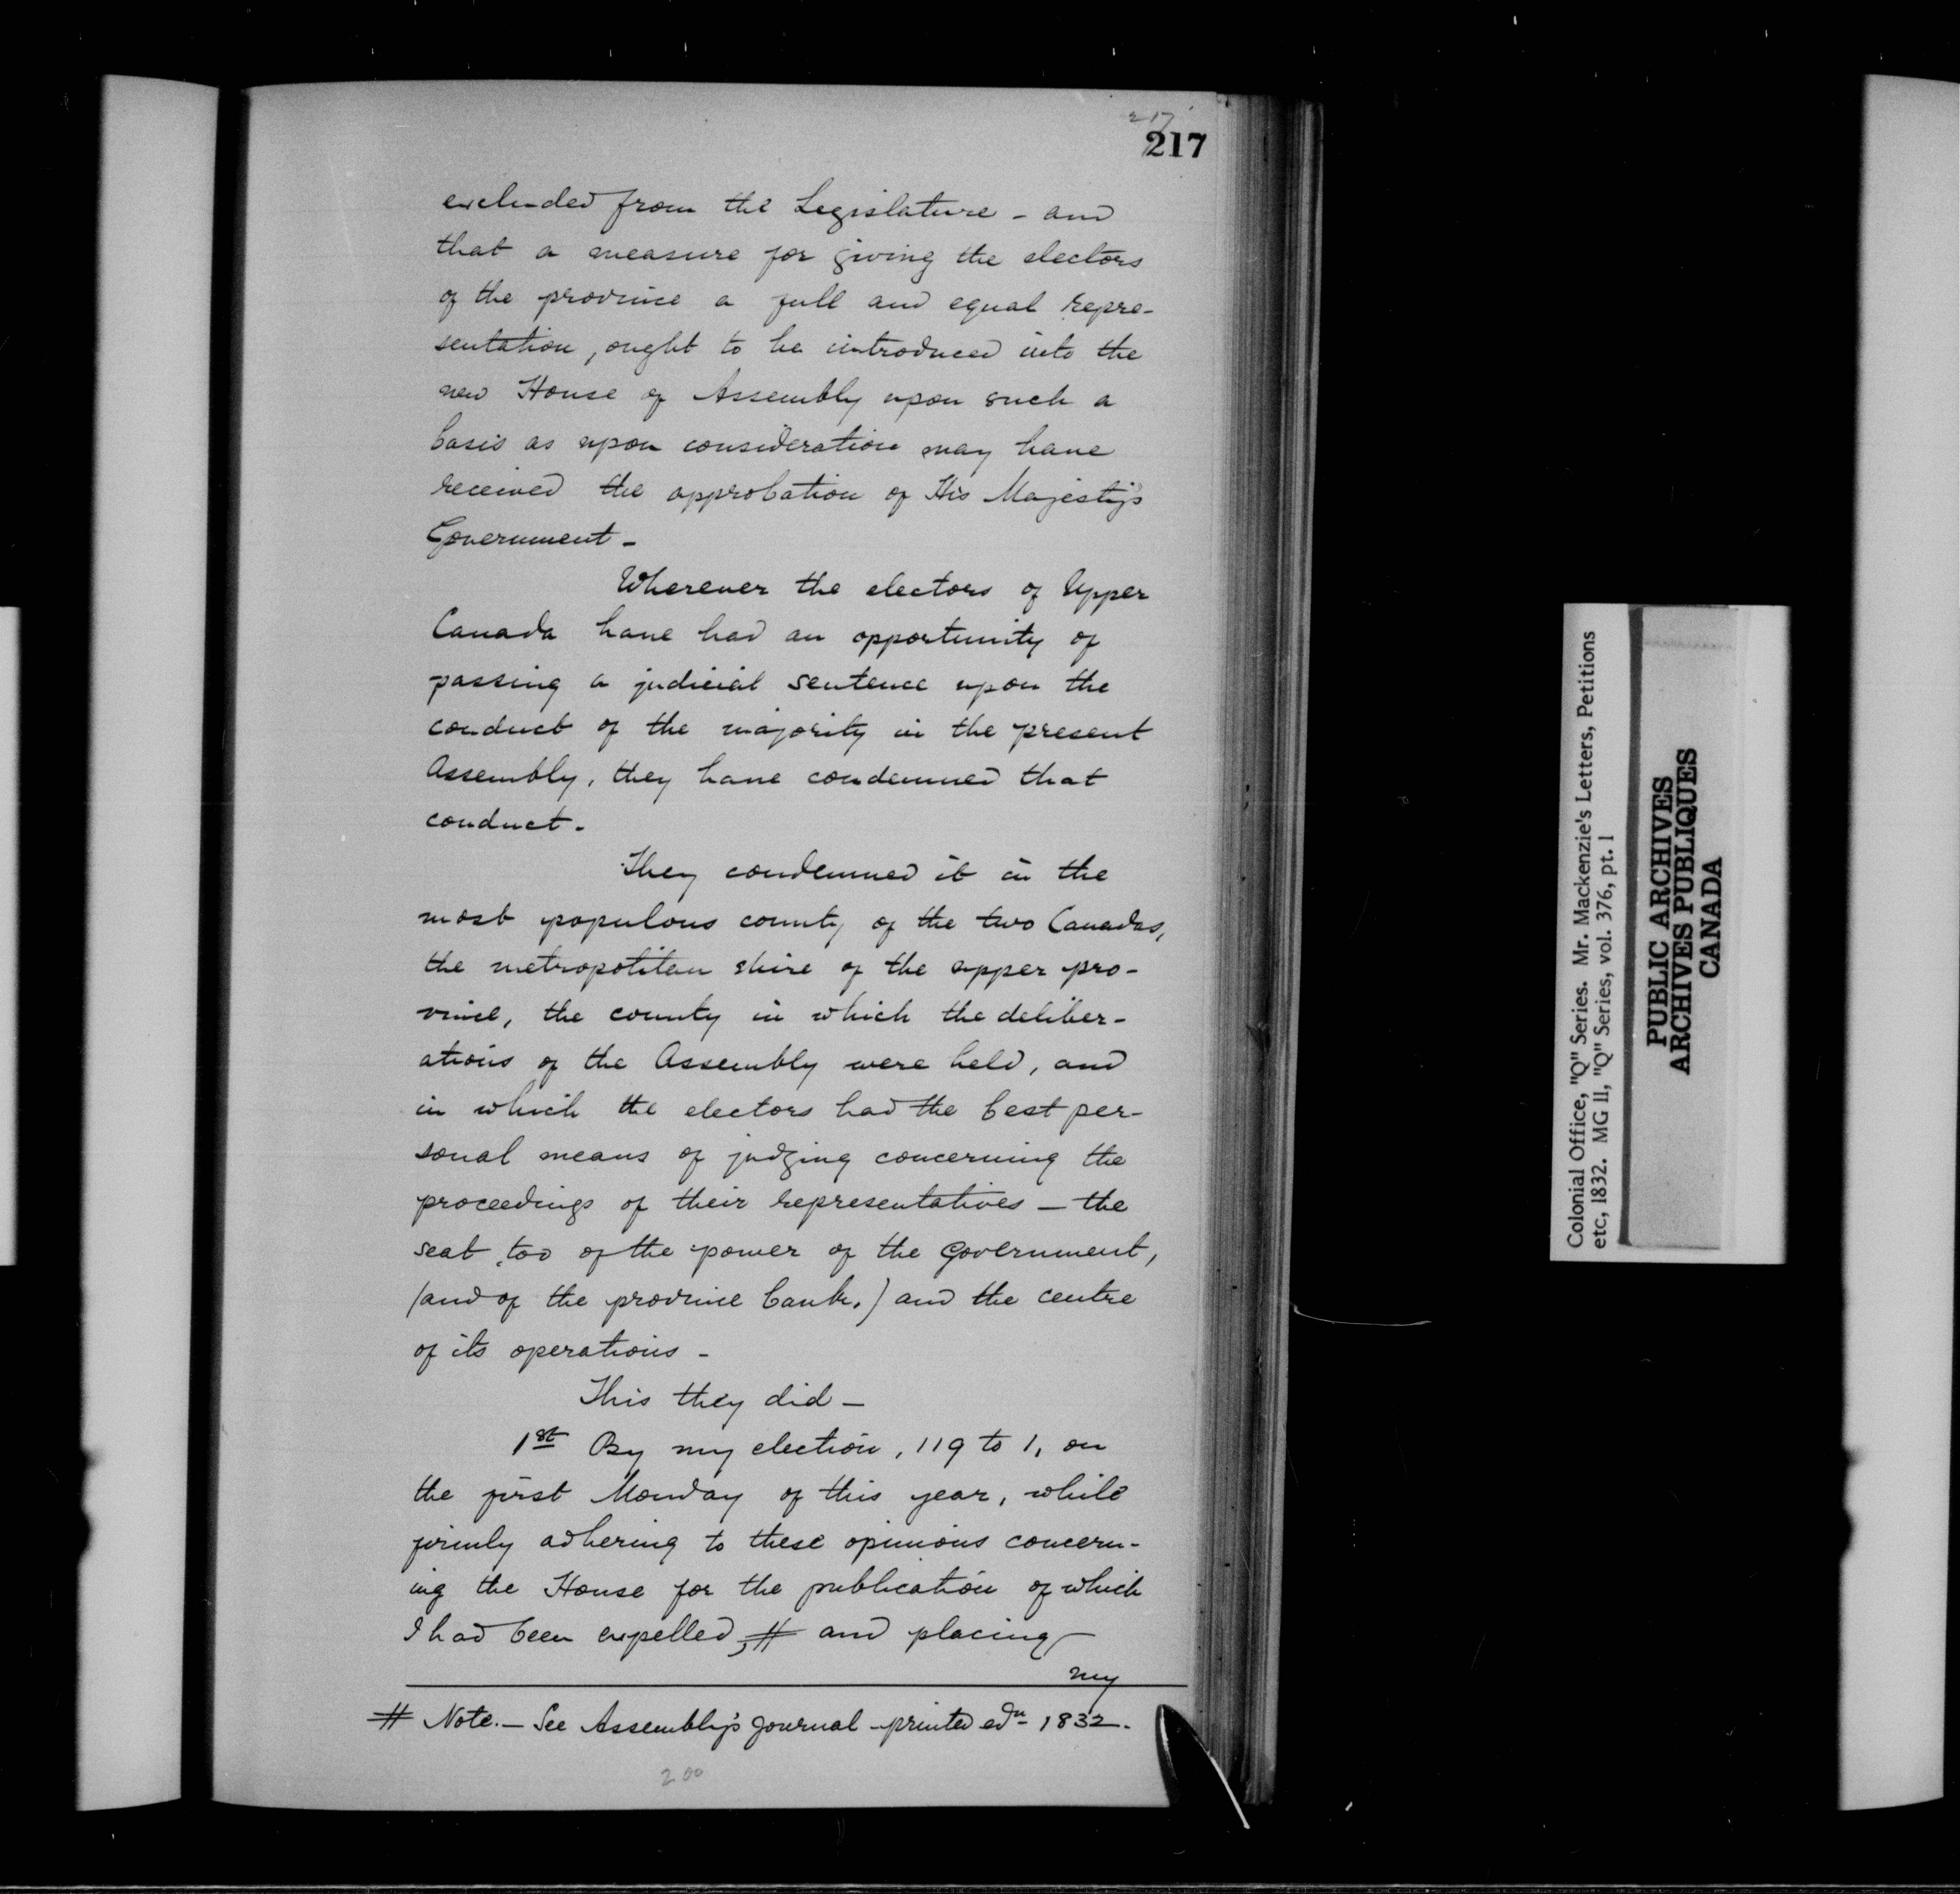 217
217
excluded from the Legislature - and
that a measure for giving the electors
of the province a full and equal repre-
sentation, ought to be introduced into the
new House of Assembly upon such a
basis as upon consideration may have
received the approbation of His Majesty's
Government -
Wherever the electors of Upper
Canada have had an opportunity of
passing a judicial sentence upon the
conduct of the majority in the present
Assembly, they have condemned that
conduct.
They condemned it in the
most populous county of the two Canadas,
the metropolitan shire of the upper pro-
vince, the county in which the deliber-
ations of the Assembly were held, and
in which the electors had the best per-
sonal means of judging concerning the
proceedings of their representatives - the
seat too of the power of the Government,
(and of the province bank.) and the centre
of its operations -
This they did -
1st By my election, 119 to 1, on
the first Monday of this year, while
firmly adhering to these opinions concern-
ing the House for the publication of which
I had been expelled, # and placing
my
# Note. - See Assembly's Journal - printed edn 1832.
200
Colonial Office, "Q" Series. Mr. Mackenzie's Letters, Petitions
etc, 1832. MG 11, "Q" Series, vol. 376, pt. 1
PUBLIC ARCHIVES
ARCHIVES PUBLIQUES
CANADA